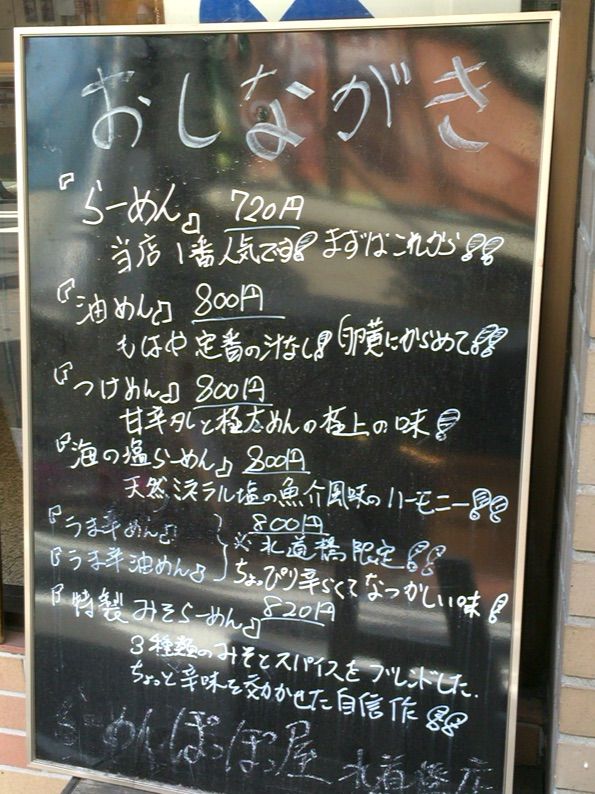 おしながき
『らーめん』 720円
当店1番人気です! まずはこれから!!
『油めん』 800円
もはや定番の汁なし! 卵黄にからめて!!
『つけめん』 800円
甘辛タレと極太めんの極上の味!
『海の塩らーめん』 800円
天然ミネラル塩の魚介風味のハーモニー!!
『うま辛めん』 800円
※水道橋限定!!
『うま辛油めん』 ちょっぴり辛くてなつかしい味!
『特製みそらーめん』 820円
3種類のみそとスパイスをブレンドした.
ちょっと辛味を効かせた自信作!!
らーめんぽっぽっ屋 水道橋店